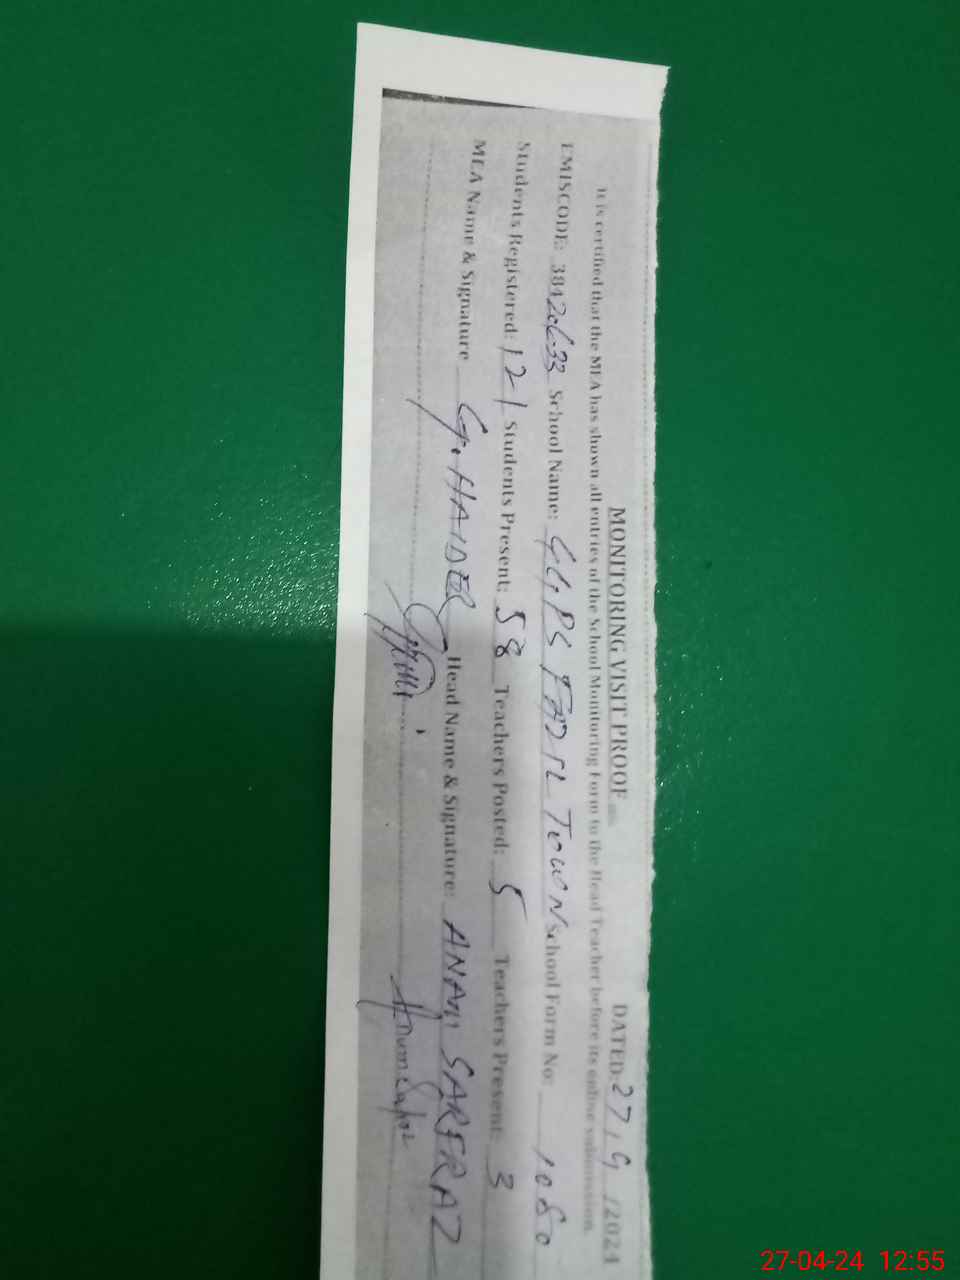 MONITORING VISIT PROOF DATED: 27.4 /2024
It is certified that the MEA has shown all entries of the School Monitoring Form to the Head Teacher before its online submission.
EMISCODE: School Name: TOWN School Form No: 1080
Students Registered: 121 Students Present: 58 Teachers Posted: 5 Teachers Present: 3
MEA Name & Signature G. HAIDER Head Name & Signature: ANAM SARFRAZ
27-04-24 12:55